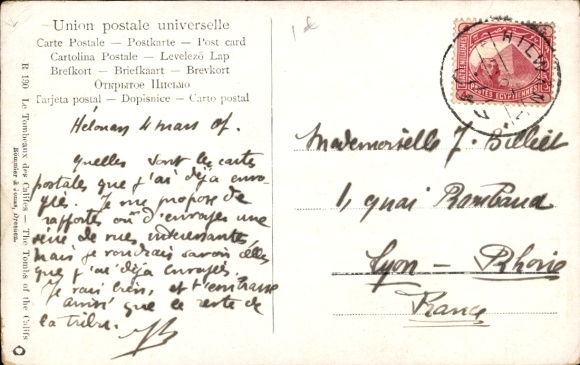 Union postale universelle
Carte Postale — Postkarte — Post card
Cartolina Postale — Levelező Lap
Brefkort — Briefkaart — Brevkort
Открытое Письмо
Tarjeta postal — Dopisnice — Carto postal
R 130 Le Tombeaux des Califes — The Tombs of the Califs
Dresden.
Hélouan 4 mars 07.
Quelles sont les cartes
postales que j'ai déjà envo-
yés. Je me propose de
rapporter ou d'envoyer une
série de vues intéressantes,
mais je voudrais savoir celles
que j'ai déjà envoyées.
Je vais bien, et
ainsi que le reste de
la tribu.
HELWAN
POSTES EGYPTIENNES
Mademoiselle J. Billiet
1, quai Rambaud
Lyon — Rhône
France